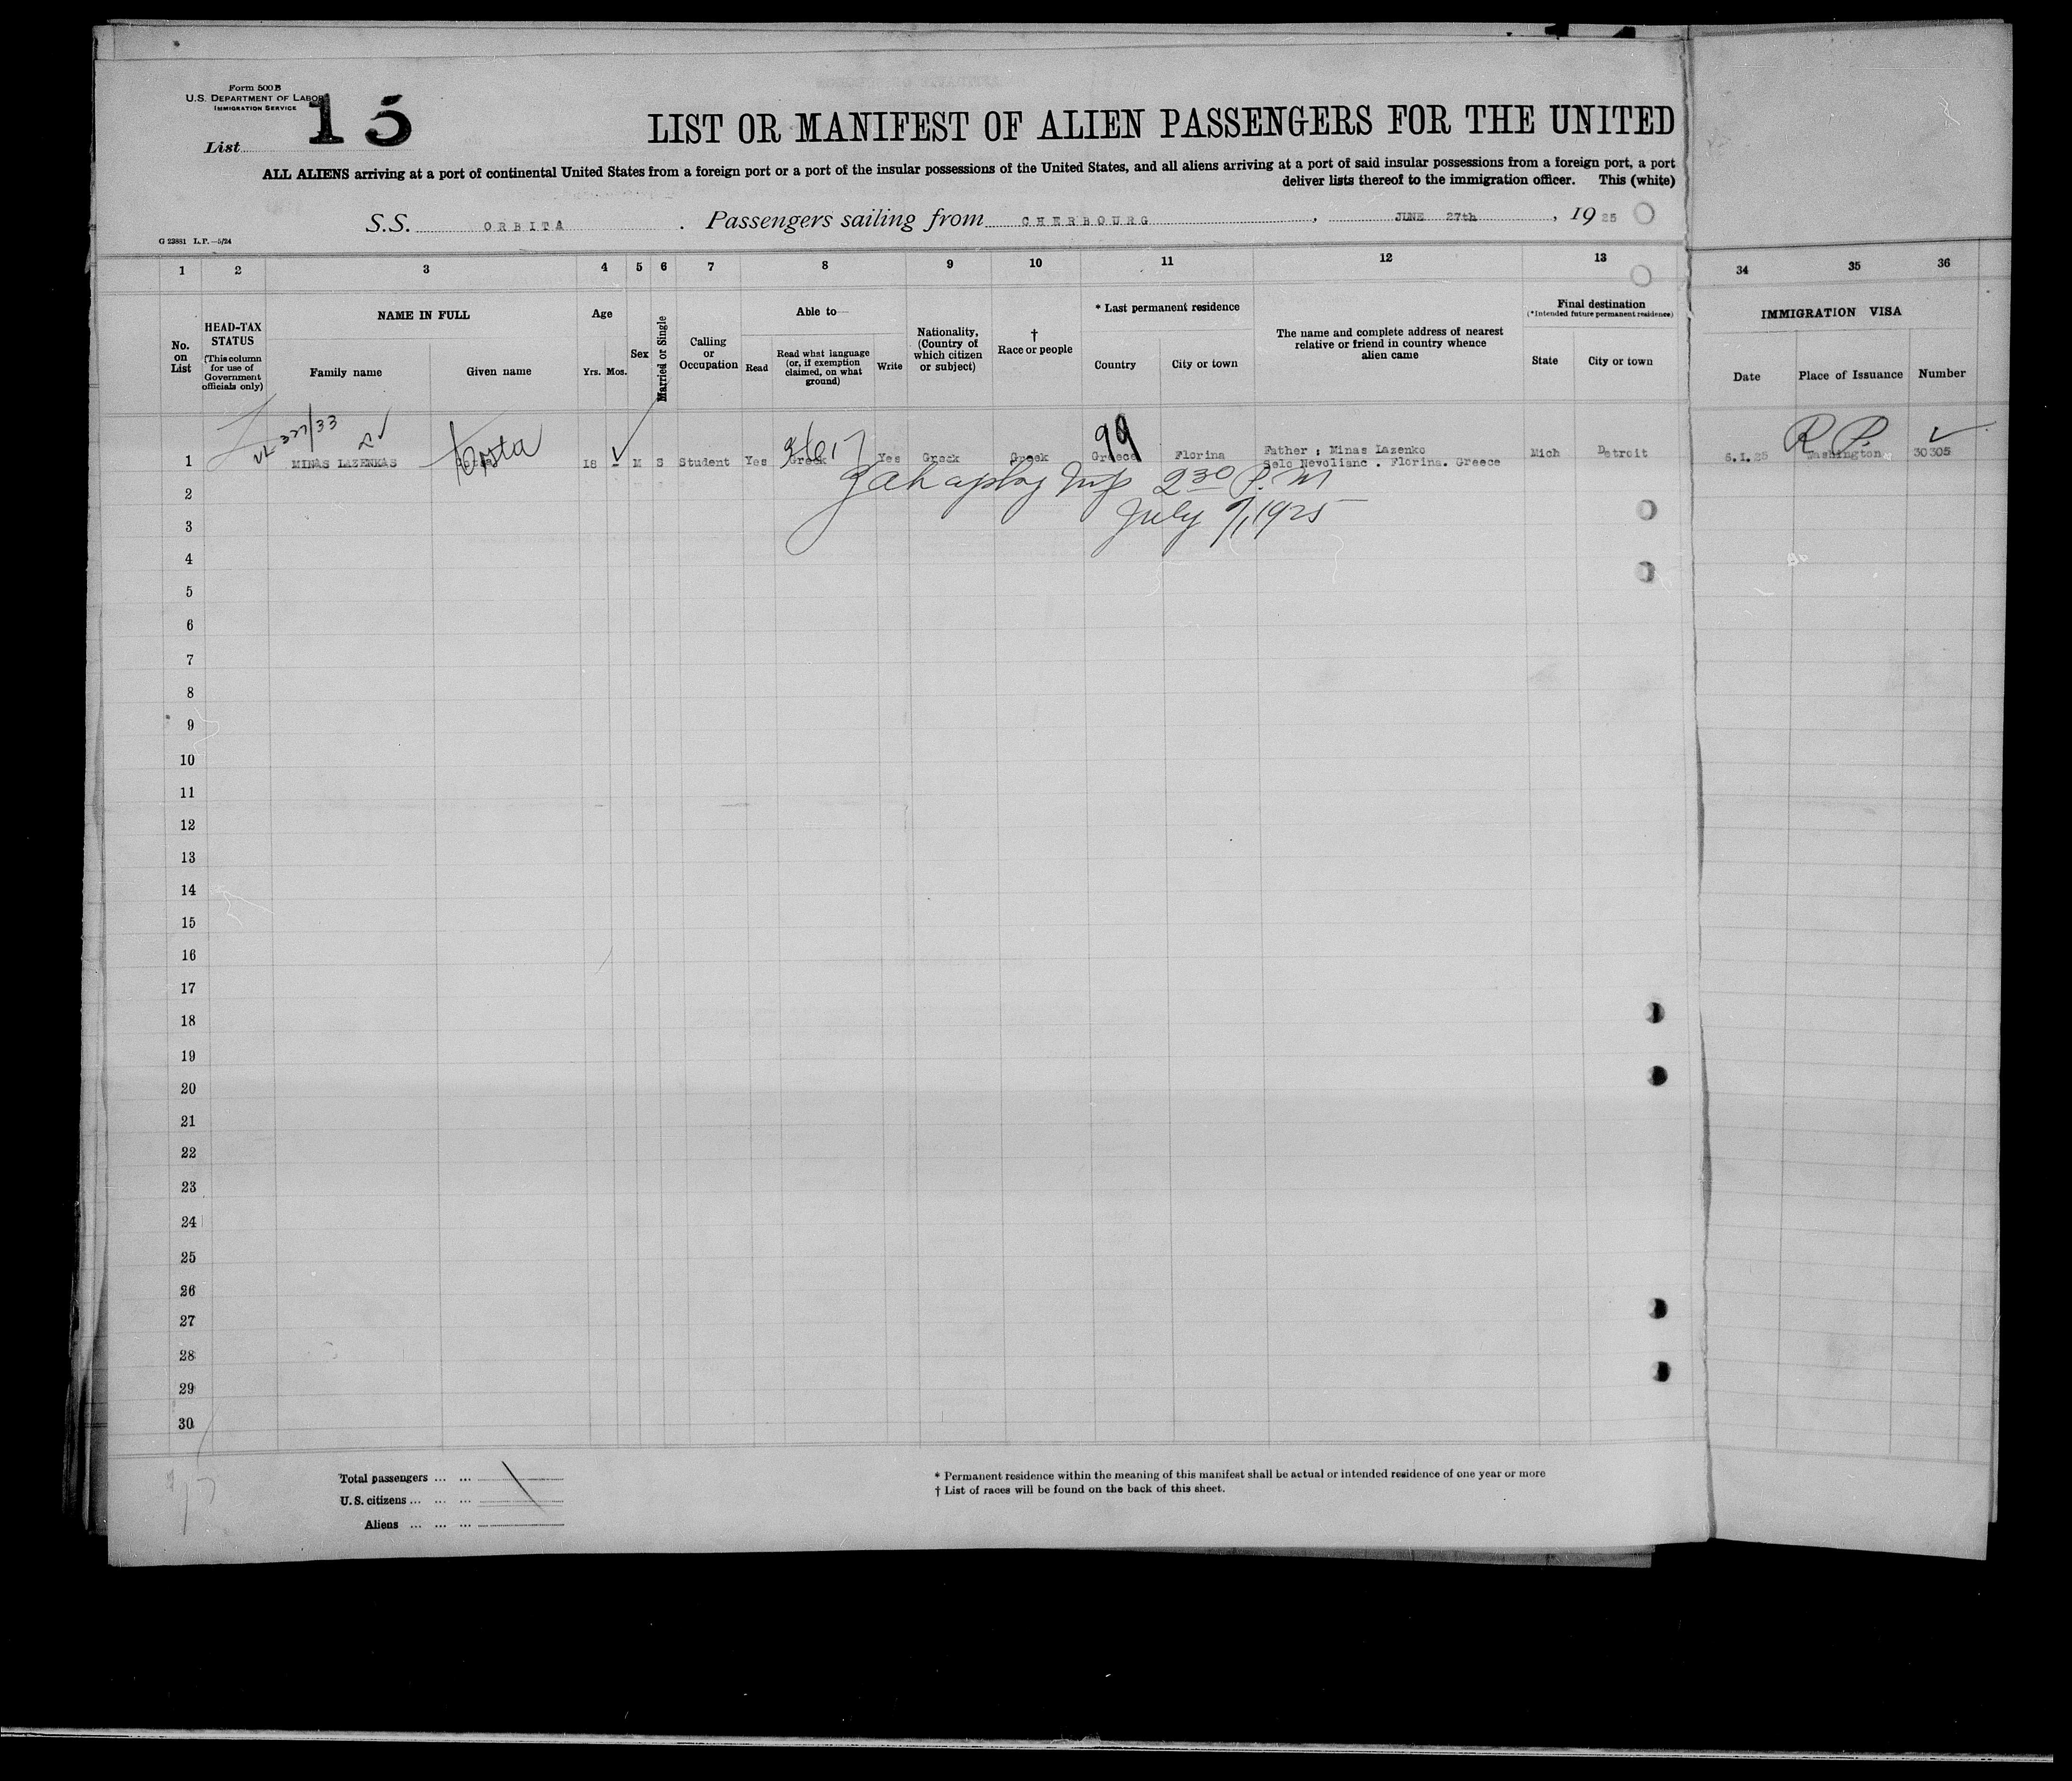 Form 500 B
U.S. DEPARTMENT OF LABOR
IMMIGRATION SERVICE
List 15
LIST OR MANIFEST OF ALIEN PASSENGERS FOR THE UNITED
ALL ALIENS arriving at a port of continental United States from a foreign port or a port of the insular possessions of the United States, and all aliens arriving at a port of said insular possessions from a foreign port, a port
deliver lists thereof to the immigration officer. This (white)
S.S. ORBITA . Passengers sailing from CHERBOURG , JUNE 27th , 19 25
G 23881 L.P.—5/24
1 2 3 4 5 6 7 8 9 10 11 12 13 34 35 36
No. on List
HEAD-TAX STATUS
(This column for use of Government officials only)
NAME IN FULL
Family name
Given name
Age
Yrs. Mos.
Sex
Married or Single
Calling or Occupation
Able to—
Read
Read what language (or, if exemption claimed, on what ground)
Write
Nationality, (Country of which citizen or subject)
† Race or people
* Last permanent residence
Country
City or town
The name and complete address of nearest relative or friend in country whence alien came
Final destination
(*Intended future permanent residence)
State
City or town
IMMIGRATION VISA
Date
Place of Issuance
Number
327/33
Costa
99
R P.
1 MINAS LAZENKAS 18 - M S Student Yes Greek Yes Greek Greek Greece Florina Father : Minas Lazenko Mich Detroit 6.1.25 Washington 30305
Selo Nevolianc . Florina. Greece
2 30 P.M
July 7, 1925
2
3
4
5
6
7
8
9
10
11
12
13
14
15
16
17
18
19
20
21
22
23
24
25
26
27
28
29
30
Total passengers ... ...
U.S. citizens ... ... ...
Aliens ... ... ...
* Permanent residence within the meaning of this manifest shall be actual or intended residence of one year or more
† List of races will be found on the back of this sheet.